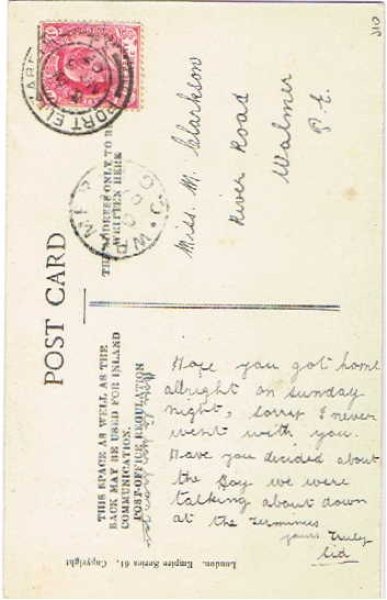 POST CARD
THIS SPACE AS WELL AS THE
BACK MAY BE USED FOR INLAND
COMMUNICATION.
POST-OFFICE REGULATION
THE ADDRESS ONLY TO BE
WRITTEN HERE
PORT EL
Miss. M. Clarkson
River Road
Walmer
P. E.
Hope you got home
allright on sunday
night, sorry I never
went with you.
Have you decided about
the Boy we were
talking about down
at the terminus
yours truly
Sid
London. Empire Series 61, Copyright
310